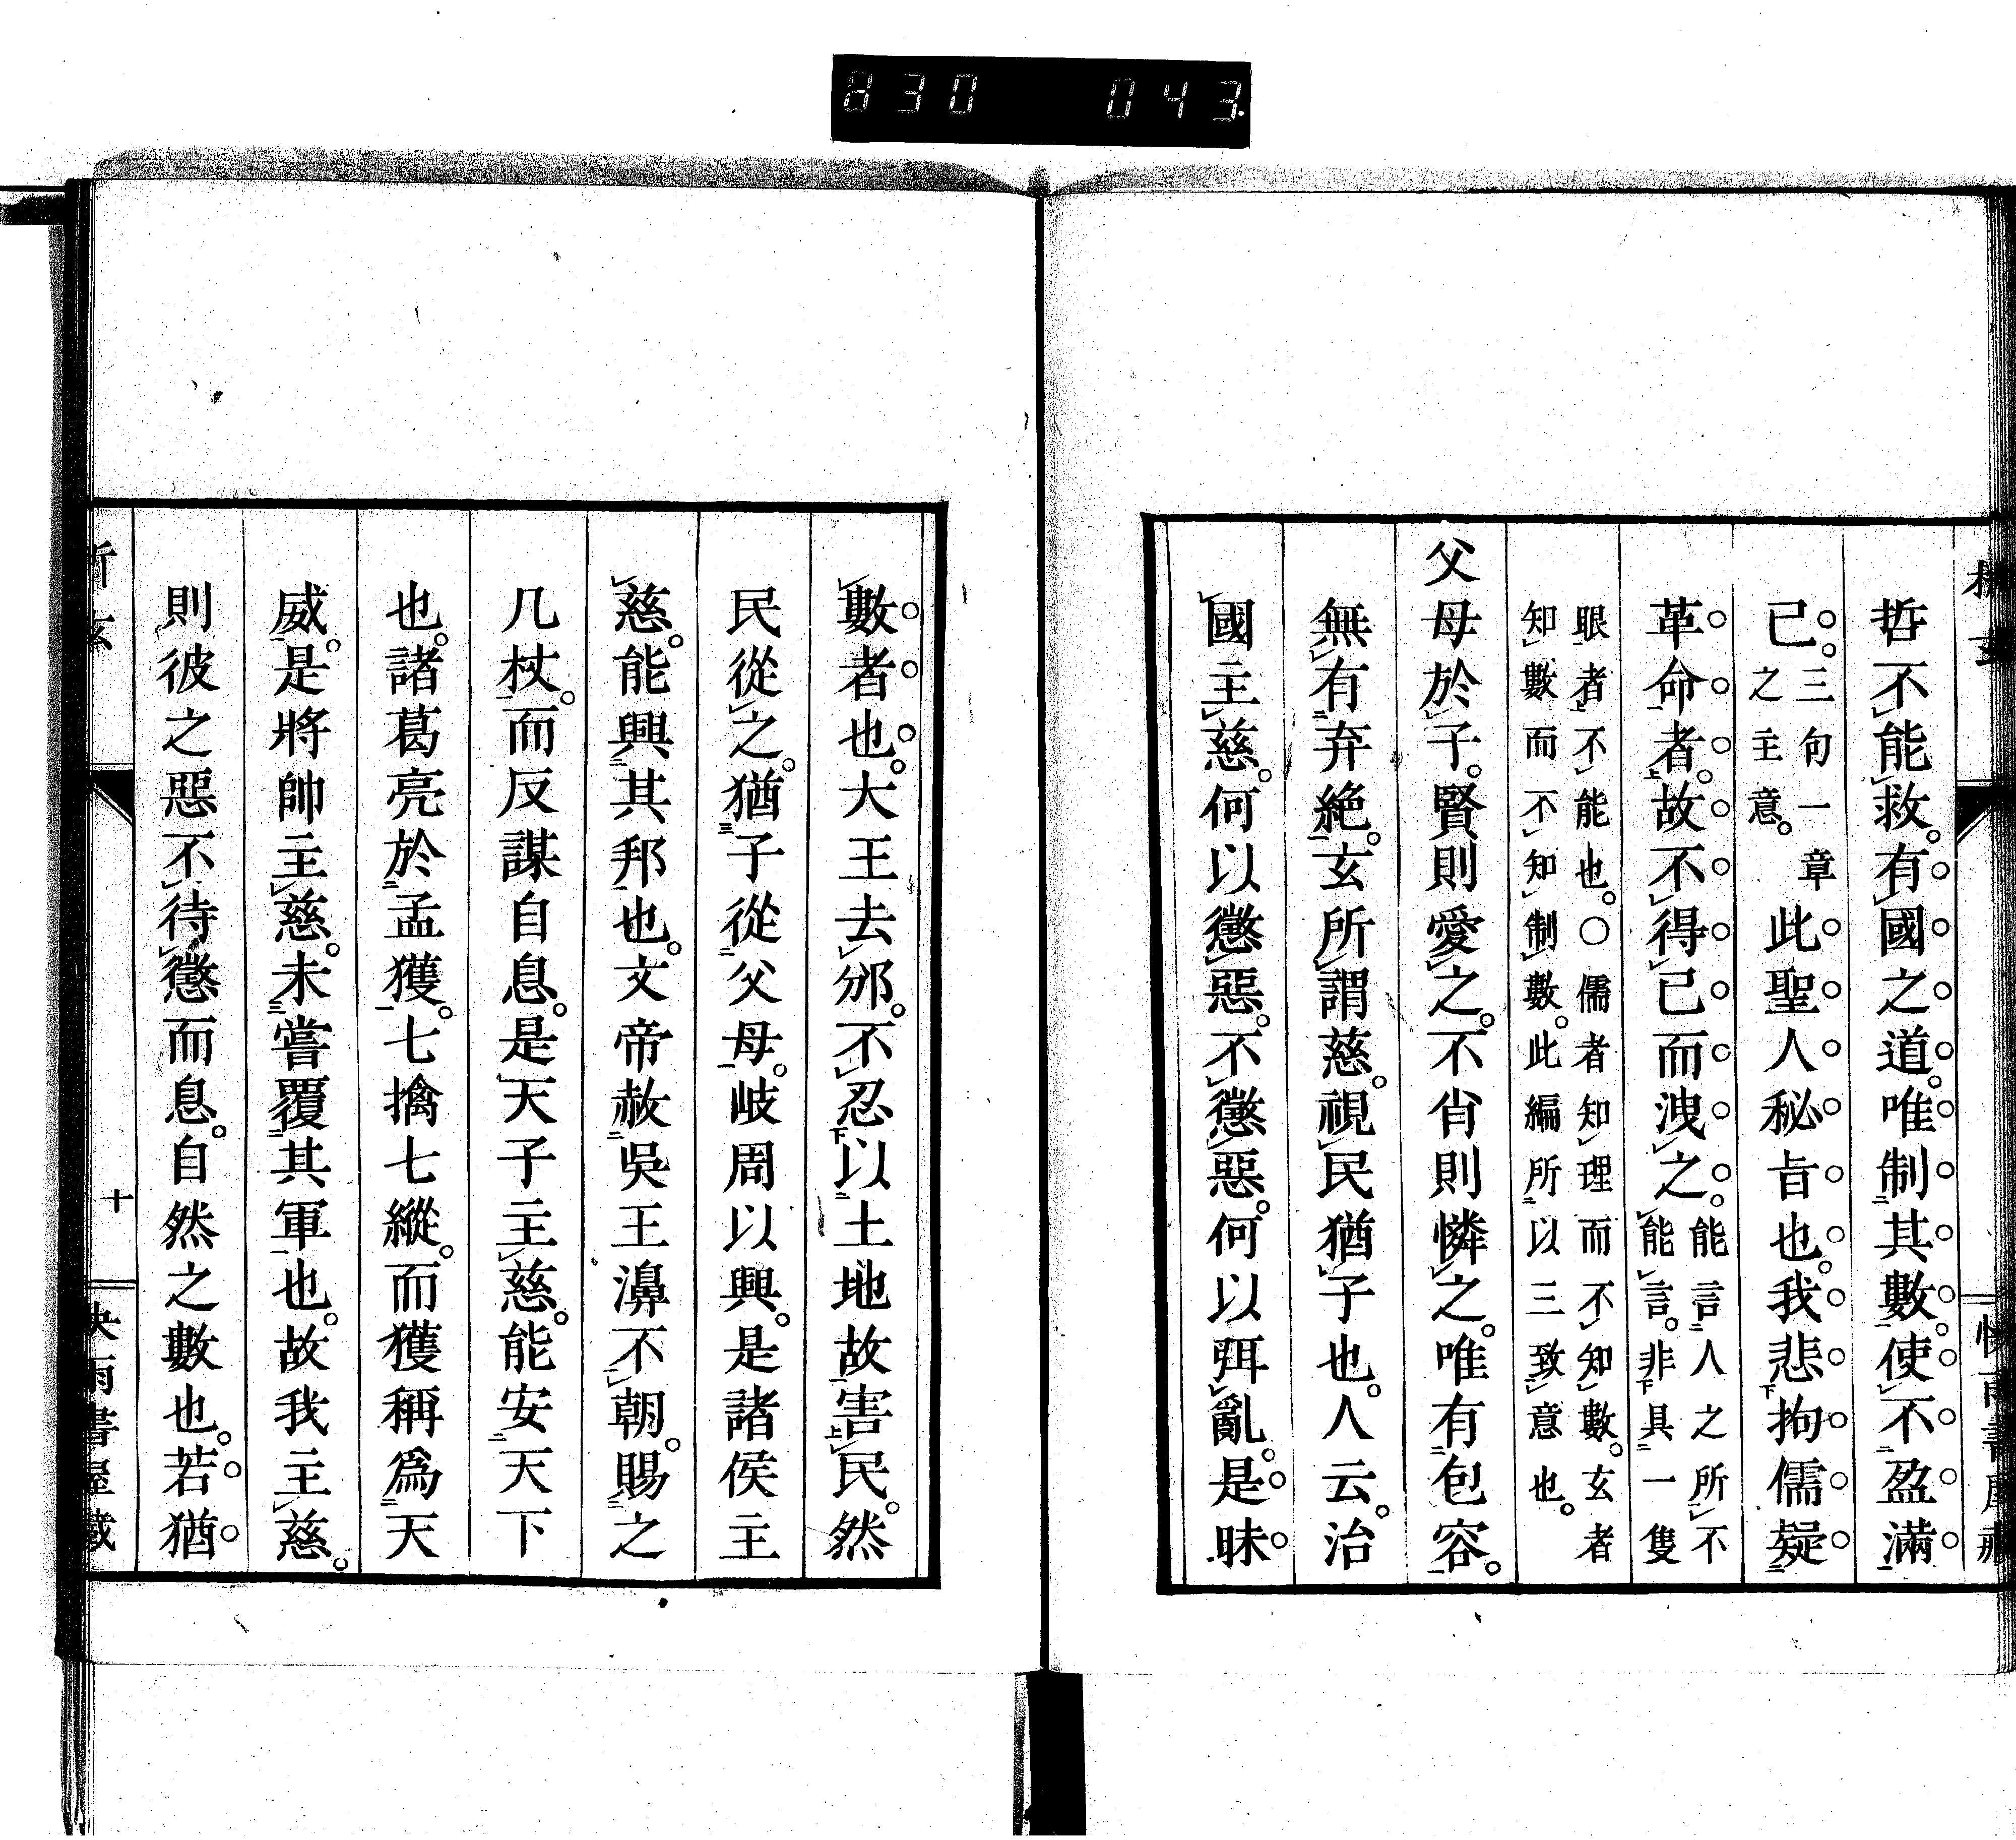 830 043.
哲不能救。有國之道。唯制其數。使不盈滿
已。三句一章之主意。此聖人秘旨也。我悲拘儒疑
革命者。故不得已而洩之。能言人之所不能言。非具一隻
眼者不能也。○儒者知理而不知數。玄者知數而不知制數。此編所以三致意也。
父母於子。賢則愛之。不肖則憐之。唯有包容。
無有弃絶。玄所謂慈。視民猶子也。人云。治
國主慈。何以懲惡。不懲惡。何以弭亂。是昧
數者也。大王去邠。不忍以土地故害民。然
民從之。猶子從父母。岐周以興。是諸侯主
慈。能興其邦也。文帝赦吳王濞不朝。賜之
几杖。而反謀自息。是天子主慈。能安天下
也。諸葛亮於孟獲。七擒七縱。而獲稱爲天
威。是將帥主慈。未嘗覆其軍也。故我主慈。
則彼之惡不待懲而息。自然之數也。若猶
十
快雨書屋藏